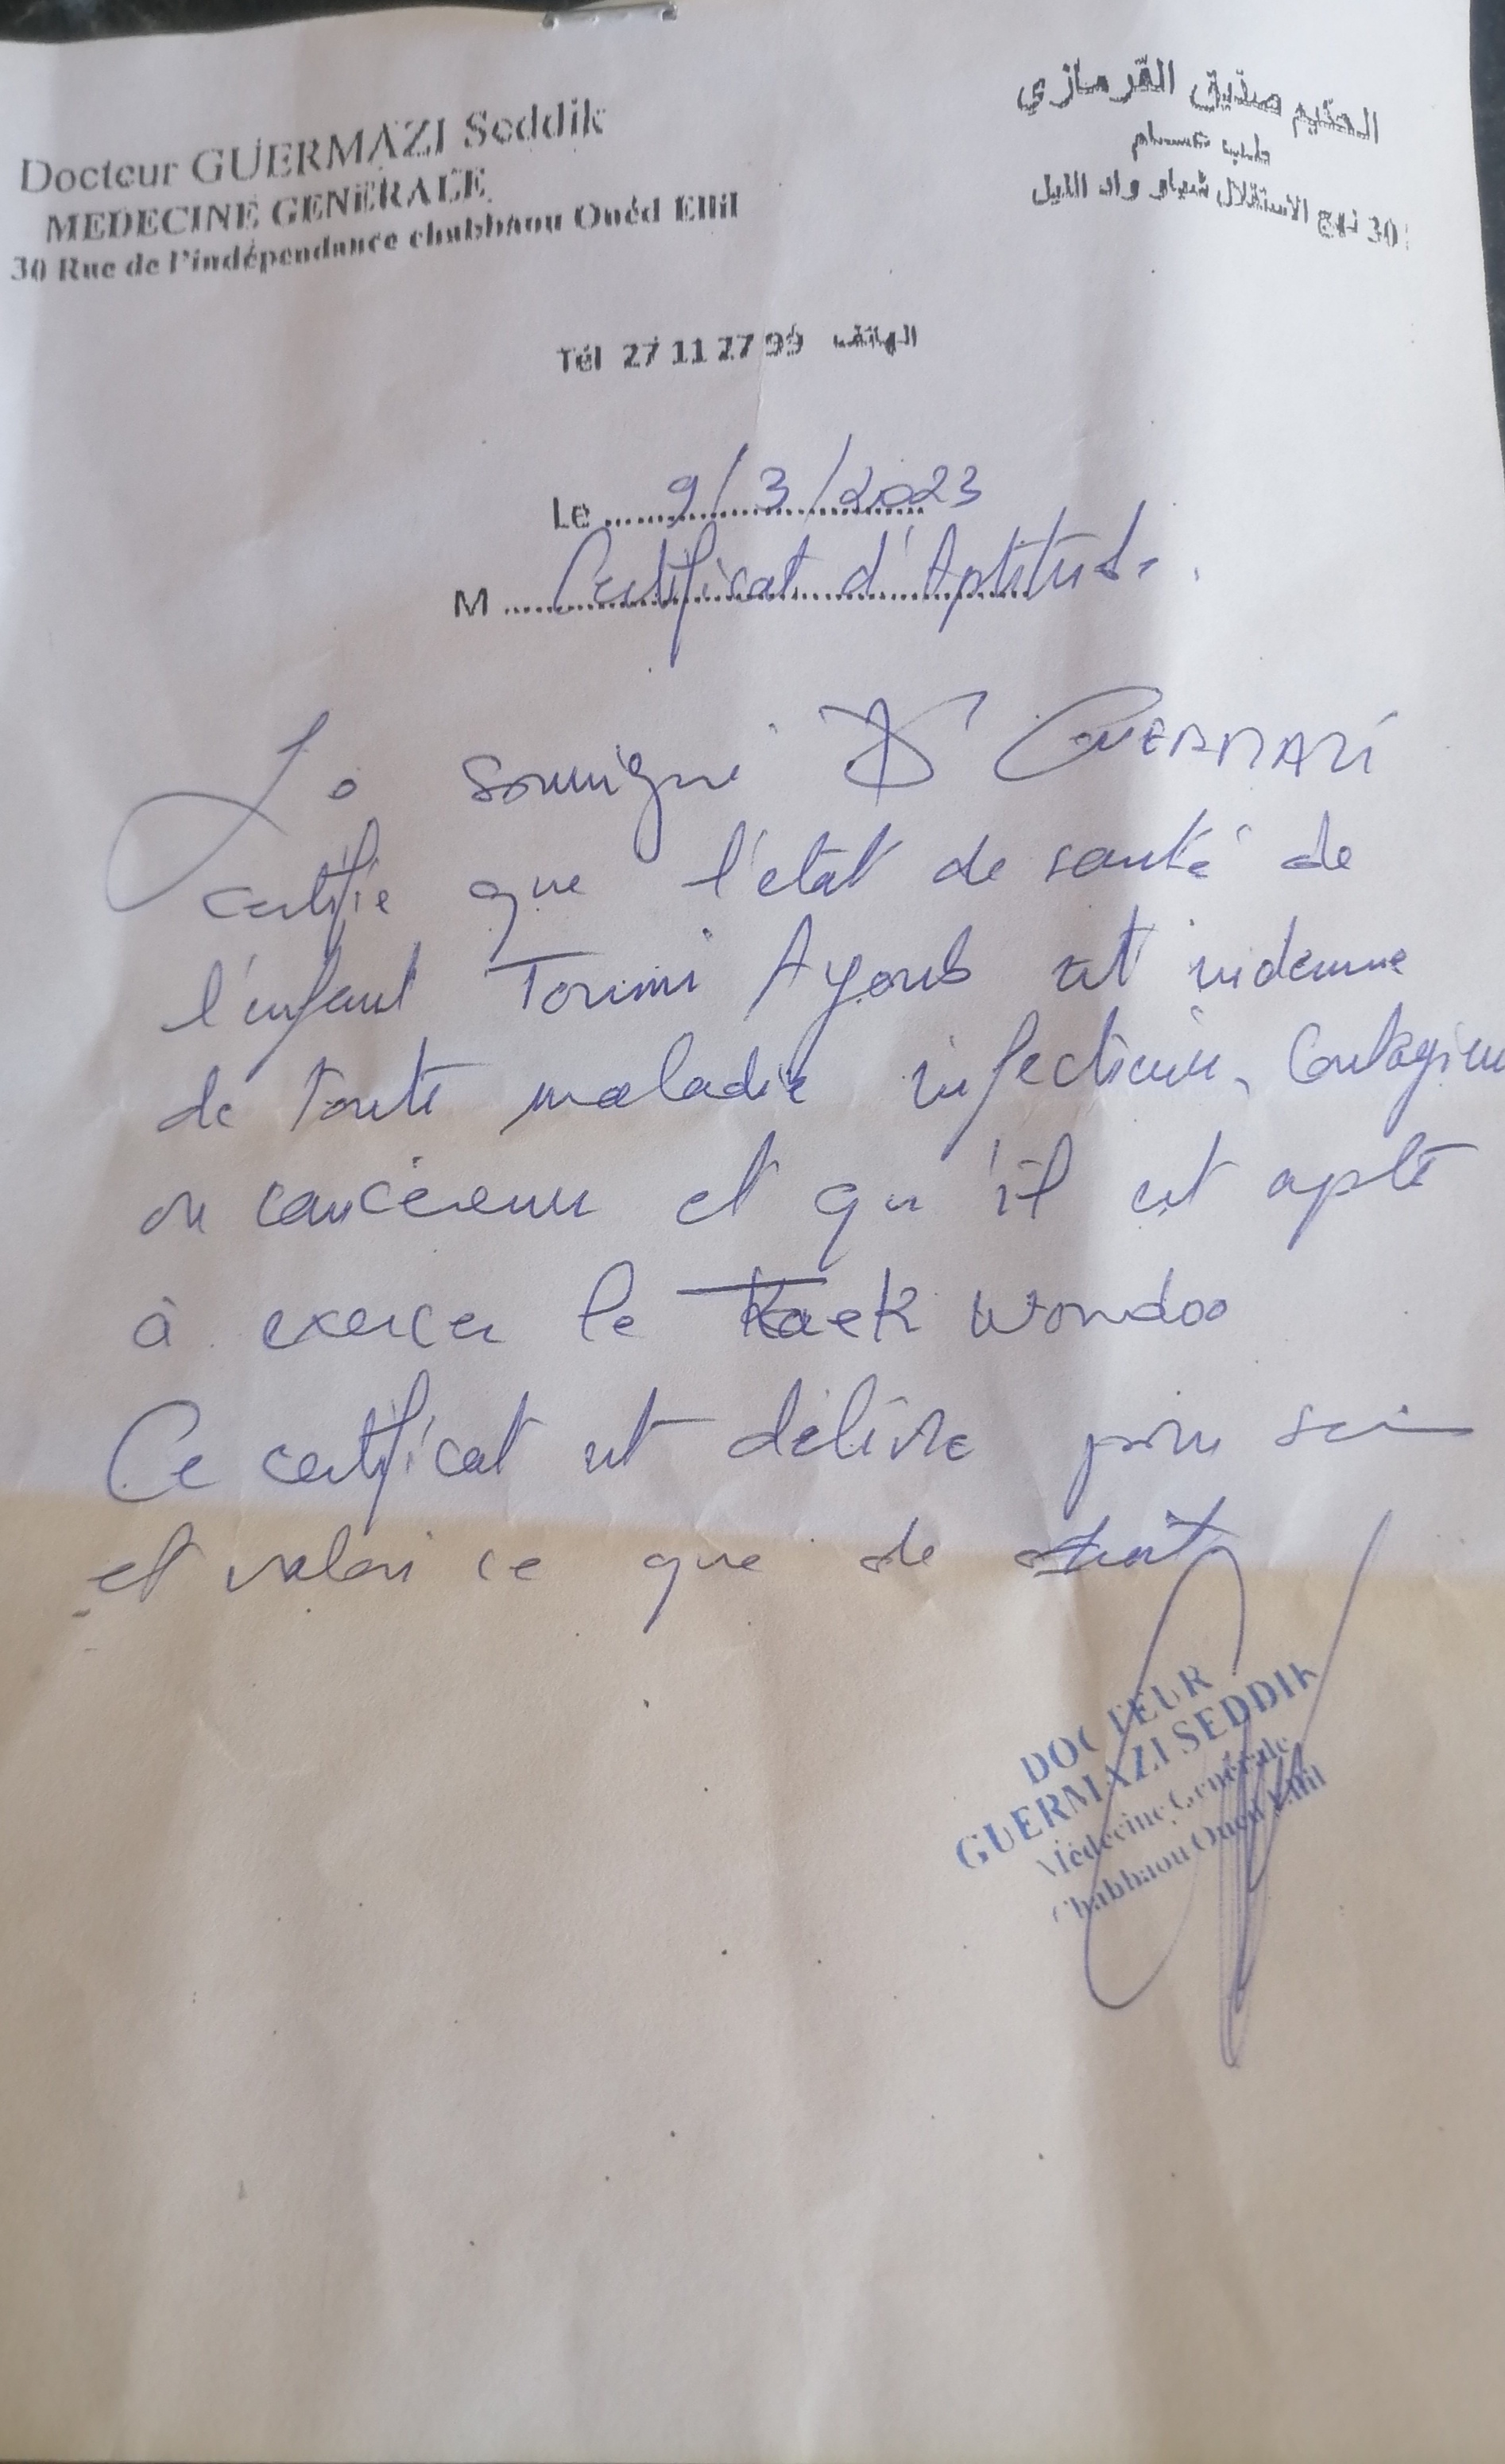 Docteur GUERMAZI Seddik
MEDECINE GENERALE
30 Rue de l'indépendance chabbaou Ouéd Ellil
الحكيم صديق القرمازي
طب عــام
30 نهج الاستقلال شباو واد الليل
Tél 27 11 27 99 الهاتف
Le 9/3/2023
M Certificat d'Aptitude.
Je soussigné Dr GUERMAZI
certifie que l'état de santé de
l'enfant Toumi Ayoub est indemne
de toute maladie infectieuse, Contagieu
ou cancéreuse et qu'il est apte
à exercer le Taek Wondoo
Ce certificat est délivré pour servir
et valoir ce que de droit
DOCTEUR
GUERMAZI SEDDIK
Médecine Générale
Chabbaou Oued Ellil